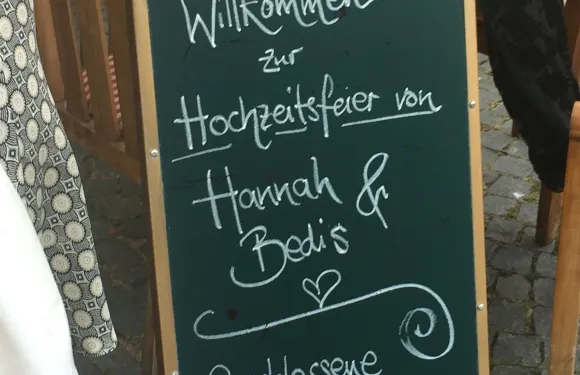 Willkommen
zur
Hochzeitsfeier von
Hannah &
Bedis
Geschlossene